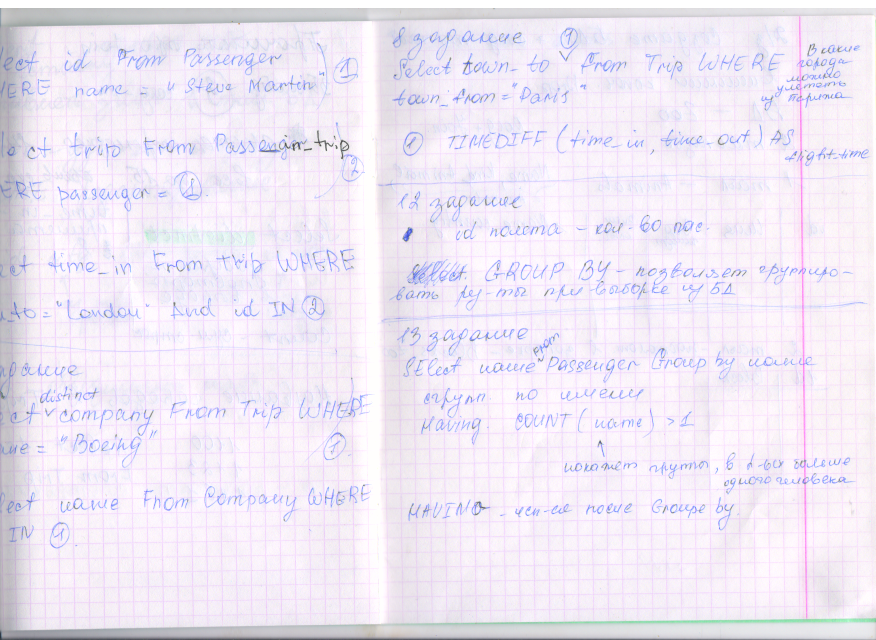 lect id From Passenger
ERE name = "Steve Martin") ①
ct trip From Passenger_in_trip
ERE passenger = ①. ②
ct time_in From trip WHERE
_to = "London" And id IN ②
дание
distinct
ect company From Trip WHERE
me = "Boeing" ①.
lect name From Company WHERE
IN ①.
8 задание ①
Select town_to From Trip WHERE
town_from = "Paris"
В какие
города
можно
улететь
из Парижа
① TIMEDIFF (time_in, time_out) AS
flight_time
12 задание
id полета - кол-во пас.
GROUP BY - позволяет группиро-
вать ру-ты при выборке из БД
13 задание
SElect name From Passenger Group by name
групп. по имени
Having. COUNT (name) > 1
↑
покажет группы, в к-ых больше
одного человека
HAVING - исп-ся после Groupe by.